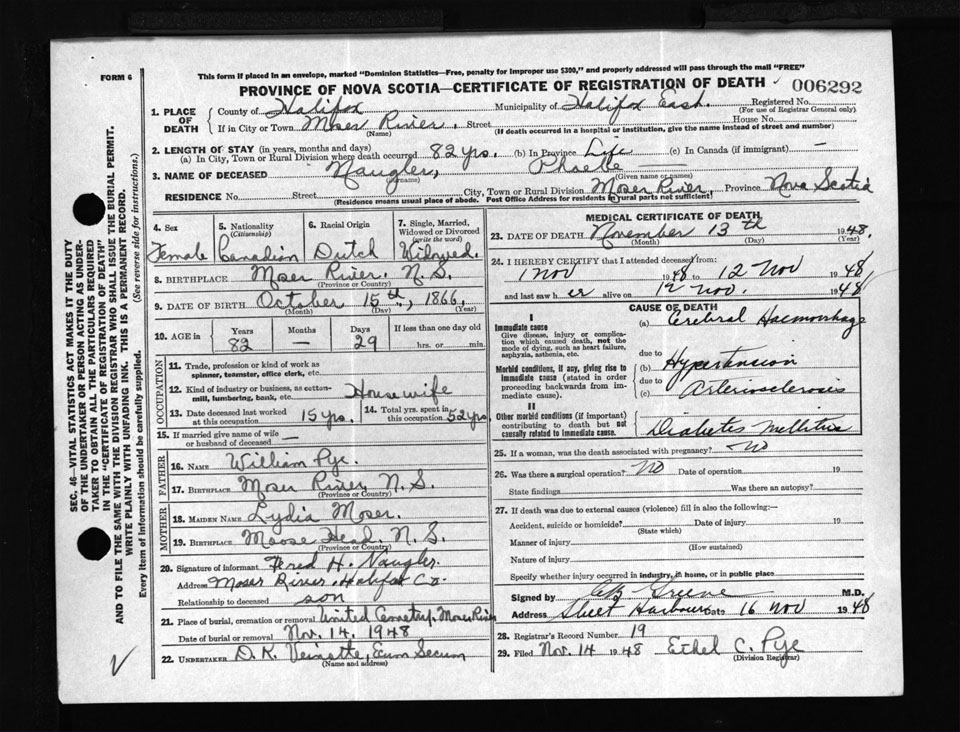 FORM 6
This form if placed in an envelope, marked "Dominion Statistics—Free, penalty for improper use $300," and properly addressed will pass through the mail "FREE"
PROVINCE OF NOVA SCOTIA—CERTIFICATE OF REGISTRATION OF DEATH
006292
SEC. 46—VITAL STATISTICS ACT MAKES IT THE DUTY
OF THE UNDERTAKER OR PERSON ACTING AS UNDER-
TAKER TO OBTAIN ALL THE PARTICULARS REQUIRED
IN THE "CERTIFICATE OF REGISTRATION OF DEATH"
AND TO FILE THE SAME WITH THE DIVISION REGISTRAR WHO SHALL ISSUE THE BURIAL PERMIT.
WRITE PLAINLY WITH UNFADING INK. THIS IS A PERMANENT RECORD.
Every item of information should be carefully supplied. (See reverse side for instructions.)
1. PLACE OF DEATH
County of Halifax Municipality of Halifax East. Registered No.
(For use of Registrar General only)
If in City or Town Moser River. Street House No.
(Name) (If death occurred in a hospital or institution, give the name instead of street and number)
2. LENGTH OF STAY (in years, months and days)
(a) In City, Town or Rural Division where death occurred 82 yrs. (b) In Province Life (c) In Canada (if immigrant) —
3. NAME OF DECEASED Naugler, Phoebe
(Surname) (Given name or names)
RESIDENCE No. Street City, Town or Rural Division Moser River, Province Nova Scotia
(Residence means usual place of abode. Post Office Address for residents in rural parts not sufficient)
4. Sex
Female
5. Nationality
(Citizenship)
Canadian
6. Racial Origin
Dutch
7. Single, Married,
Widowed or Divorced
(write the word)
Widowed.
8. BIRTHPLACE Moser River. N.S.
(Province or Country)
9. DATE OF BIRTH October 15th, 1866.
(Month) (Day) (Year)
10. AGE in
Years Months Days If less than one day old
82 — 29 hrs. or min.
OCCUPATION
11. Trade, profession or kind of work as
spinner, teamster, office clerk, etc.
12. Kind of industry or business, as cotton-
mill, lumbering, bank, etc.
Housewife
13. Date deceased last worked
at this occupation 15 yrs.
14. Total yrs. spent in
this occupation 52 yrs
15. If married give name of wife
or husband of deceased —
FATHER
16. NAME William Pye.
17. BIRTHPLACE Moser River N.S.
(Province or Country)
MOTHER
18. MAIDEN NAME Lydia Moser.
19. BIRTHPLACE Moose Head. N.S.
(Province or Country)
20. Signature of informant Fered H. Naugler
Address Moser River Halifax Co.
Relationship to deceased son
21. Place of burial, cremation or removal United Cemetry, Moser River
Date of burial or removal Nov. 14, 1948
22. UNDERTAKER D. K. Veinotte, Ecum Secum
(Name and address)
MEDICAL CERTIFICATE OF DEATH
23. DATE OF DEATH November 13th 1948.
(Month) (Day) (Year)
24. I HEREBY CERTIFY that I attended deceased from:
1 Nov 1948 to 12 Nov 1948
and last saw her alive on 12 Nov. 1948
CAUSE OF DEATH
I
Immediate cause
Give disease, injury or complica-
tion which caused death, not the
mode of dying, such as heart failure,
asphyxia, asthenia, etc.
(a) Cerebral Haemorrhage
due to
Morbid conditions, if any, giving rise to
immediate cause (stated in order
proceeding backwards from im-
mediate cause).
(b) Hypertension
due to
(c) Arteriosclerosis
II
Other morbid conditions (if important)
contributing to death but not
causally related to immediate cause.
Diabetes Mellitus
25. If a woman, was the death associated with pregnancy? No
26. Was there a surgical operation? No Date of operation 19
State findings Was there an autopsy?
27. If death was due to external causes (violence) fill in also the following:—
Accident, suicide or homicide? Date of injury 19
(State which)
Manner of injury
(How sustained)
Nature of injury
Specify whether injury occurred in industry, in home, or in public place
Signed by Greene M.D.
Address Sheet Harbour Date 16 Nov 1948
28. Registrar's Record Number 19
29. Filed Nov. 14 1948 Ethel C. Pye
(Division Registrar)